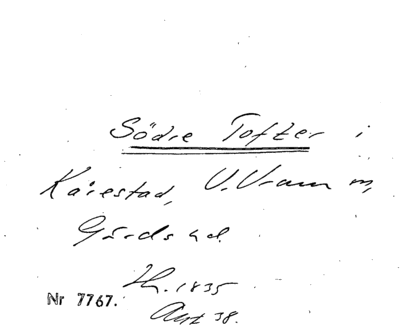 Södre Tofter i
Kärestad, V. Vram m,
Gärds hd.
Th. 1835
Nr 7767.
Avst 38.